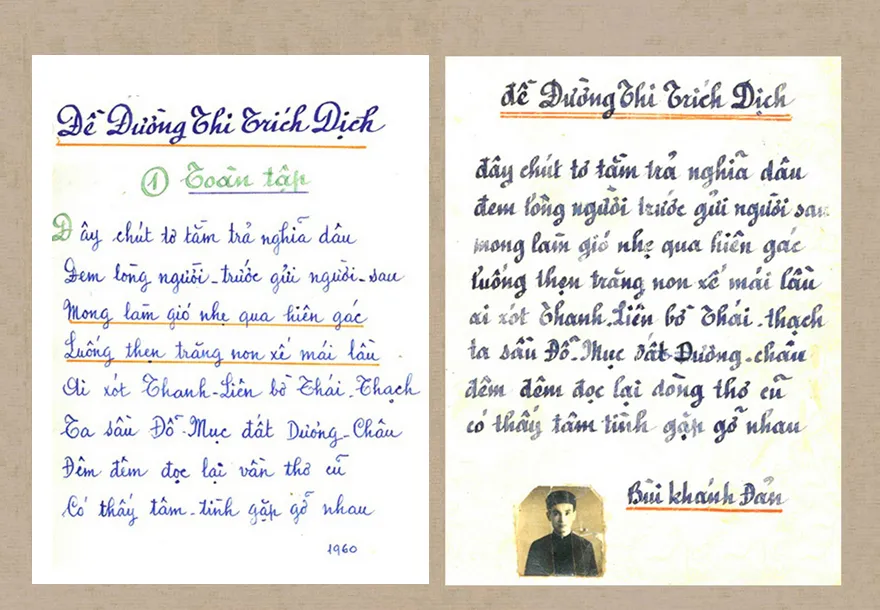 Đề Đường Thi Trích Dịch
① Toàn tập
Đây chút tơ tằm trả nghĩa dâu
Đem lòng người-trước gửi người-sau
Mong làm gió nhẹ qua hiên gác
Luống thẹn trăng non xế mái lầu
Ai xót Thanh-Liên bờ Thái-Thạch
Ta sầu Đỗ-Mục đất Dương-Châu
Đêm đêm đọc lại vần thơ cũ
Có thấy tâm-tình gặp gỡ nhau
1960
đề Đường Thi Trích Dịch
đây chút tơ tằm trả nghĩa dâu
đem lòng người trước gửi người sau
mong làm gió nhẹ qua hiên gác
luống thẹn trăng non xế mái lầu
ai xót Thanh-Liên bờ Thái-thạch
ta sầu Đỗ-Mục đất Dương-châu
đêm đêm đọc lại dòng thơ cũ
có thấy tâm tình gặp gỡ nhau
Bùi khánh Đản